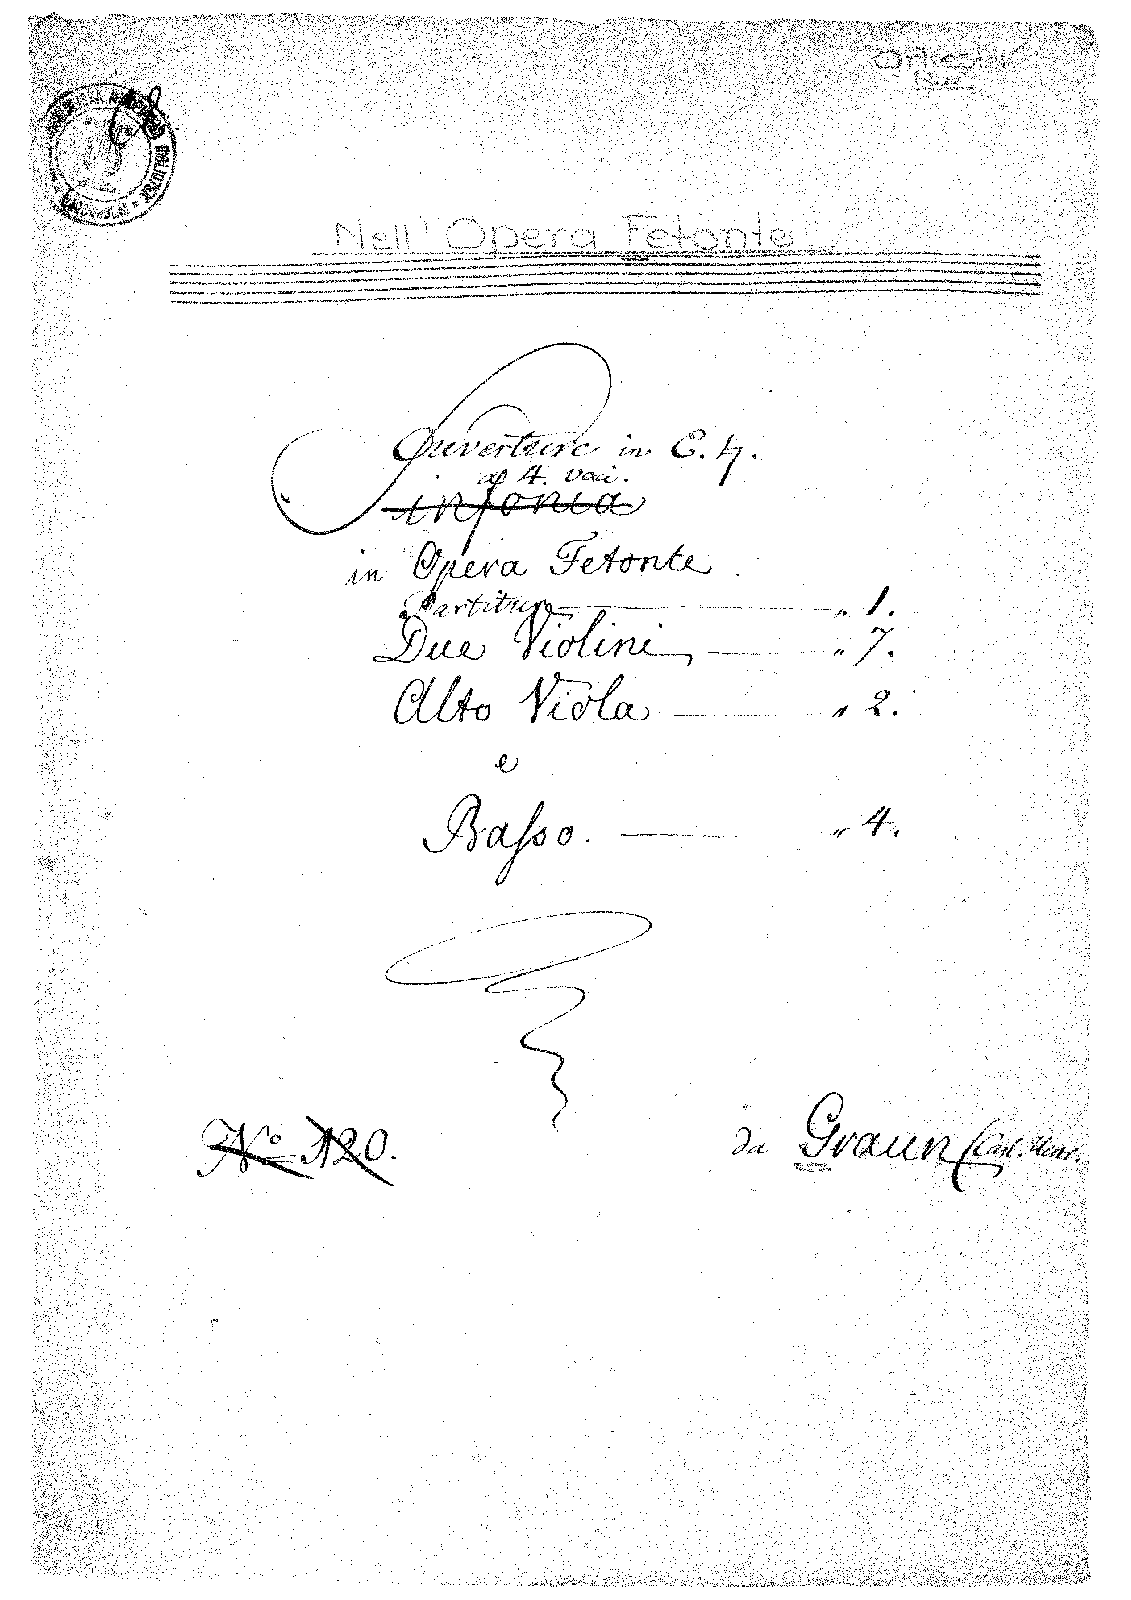 Nell' Opera Fetonte
Ouverture in E. ♮.
a 4. voci.
Sinfonia
in Opera Fetonte
Partitur „ 1.
Due Violini „ 7.
Alto Viola „ 2.
e
Basso. „ 4.
No 120. da Graun (Carl Heinr.